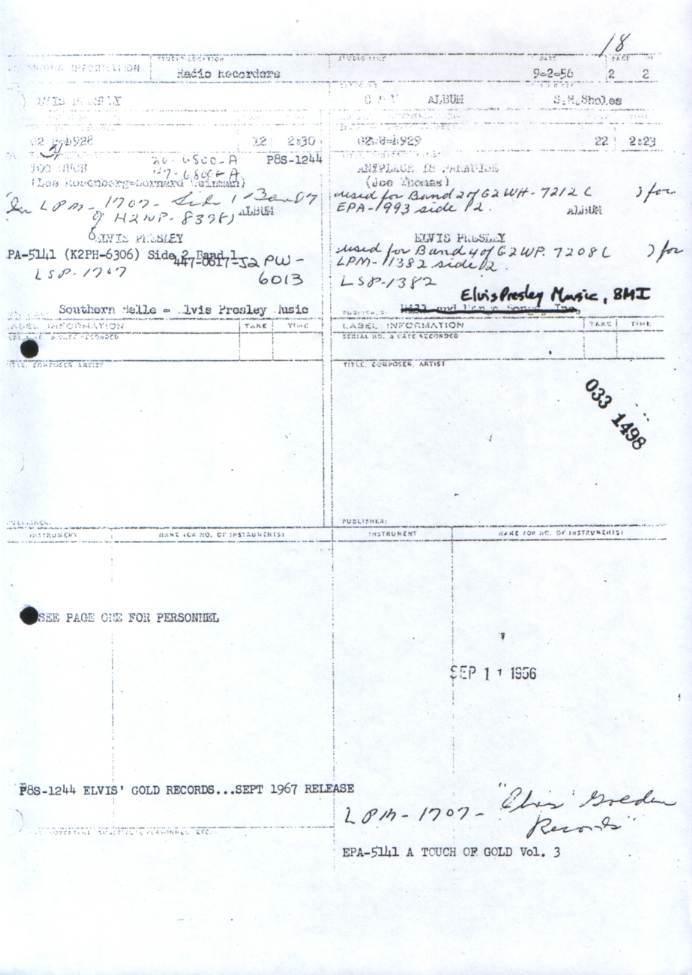 18
STUDIO LOCATION
STUDIO
DATE
PAGE
INFORMATION
Radio Recorders
9-2-56
2 2
ELVIS PRESLEY
ALBUM
S.H.Sholes
12 2:30
22 2:23
20-6800-A P8S-1244
47-6800-A
TOO MUCH
(Lee Rosenberg-Bernard Weinman)
ANYPLACE IS PARADISE
(Joe Thomas)
In LPM-1707- Side 1 Band 7
of H2WP-8398)
ALBUM
used for Band 2 of G2WH-7212 ( ) for
EPA-1993 side 2.
ALBUM
ELVIS PRESLEY
ELVIS PRESLEY
PA-5141 (K2PH-6306) Side 2 Band 1
447-0617-J2PW-
6013
LSP-1707
used for Band 4 of G2WP-7208 ( ) for
LPM-1382 side 2.
LSP-1382
Southern Belle - Elvis Presley Music
Elvis Presley Music, BMI
LABEL INFORMATION TAKE TIME
LABEL INFORMATION TAKE TIME
SERIAL NO. & DATE RECORDED
SERIAL NO. & DATE RECORDED
TITLE, COMPOSER, ARTIST
TITLE, COMPOSER, ARTIST
033 1498
PUBLISHER:
PUBLISHER:
INSTRUMENT NAME (OR NO. OF INSTRUMENTS)
INSTRUMENT NAME (OR NO. OF INSTRUMENTS)
SEE PAGE ONE FOR PERSONNEL
SEP 11 1956
P8S-1244 ELVIS' GOLD RECORDS...SEPT 1967 RELEASE
LPM-1707- "Elvis' Golden
Records"
EPA-5141 A TOUCH OF GOLD Vol. 3